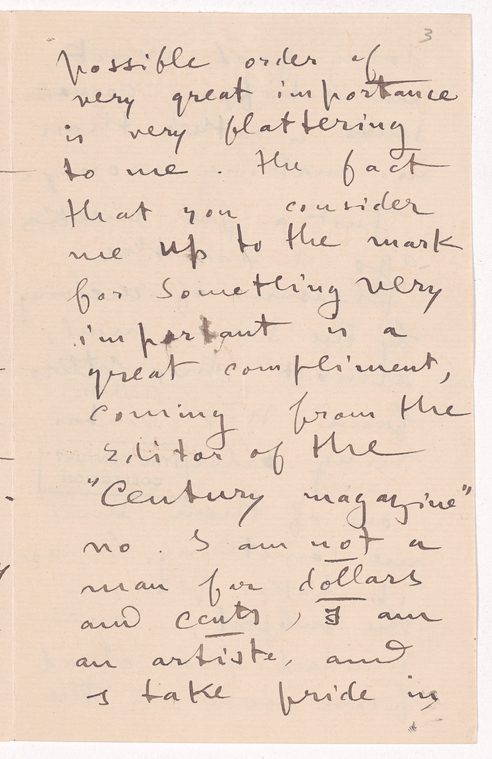 3
possible order of
very great importance
is very flattering
to me. The fact
that you consider
me up to the mark
for something very
important is a
great compliment,
coming from the
Editor of the
"Century magazine"
no. I am not a
man for dollars
and cents, I am
an artiste, and
I take pride in